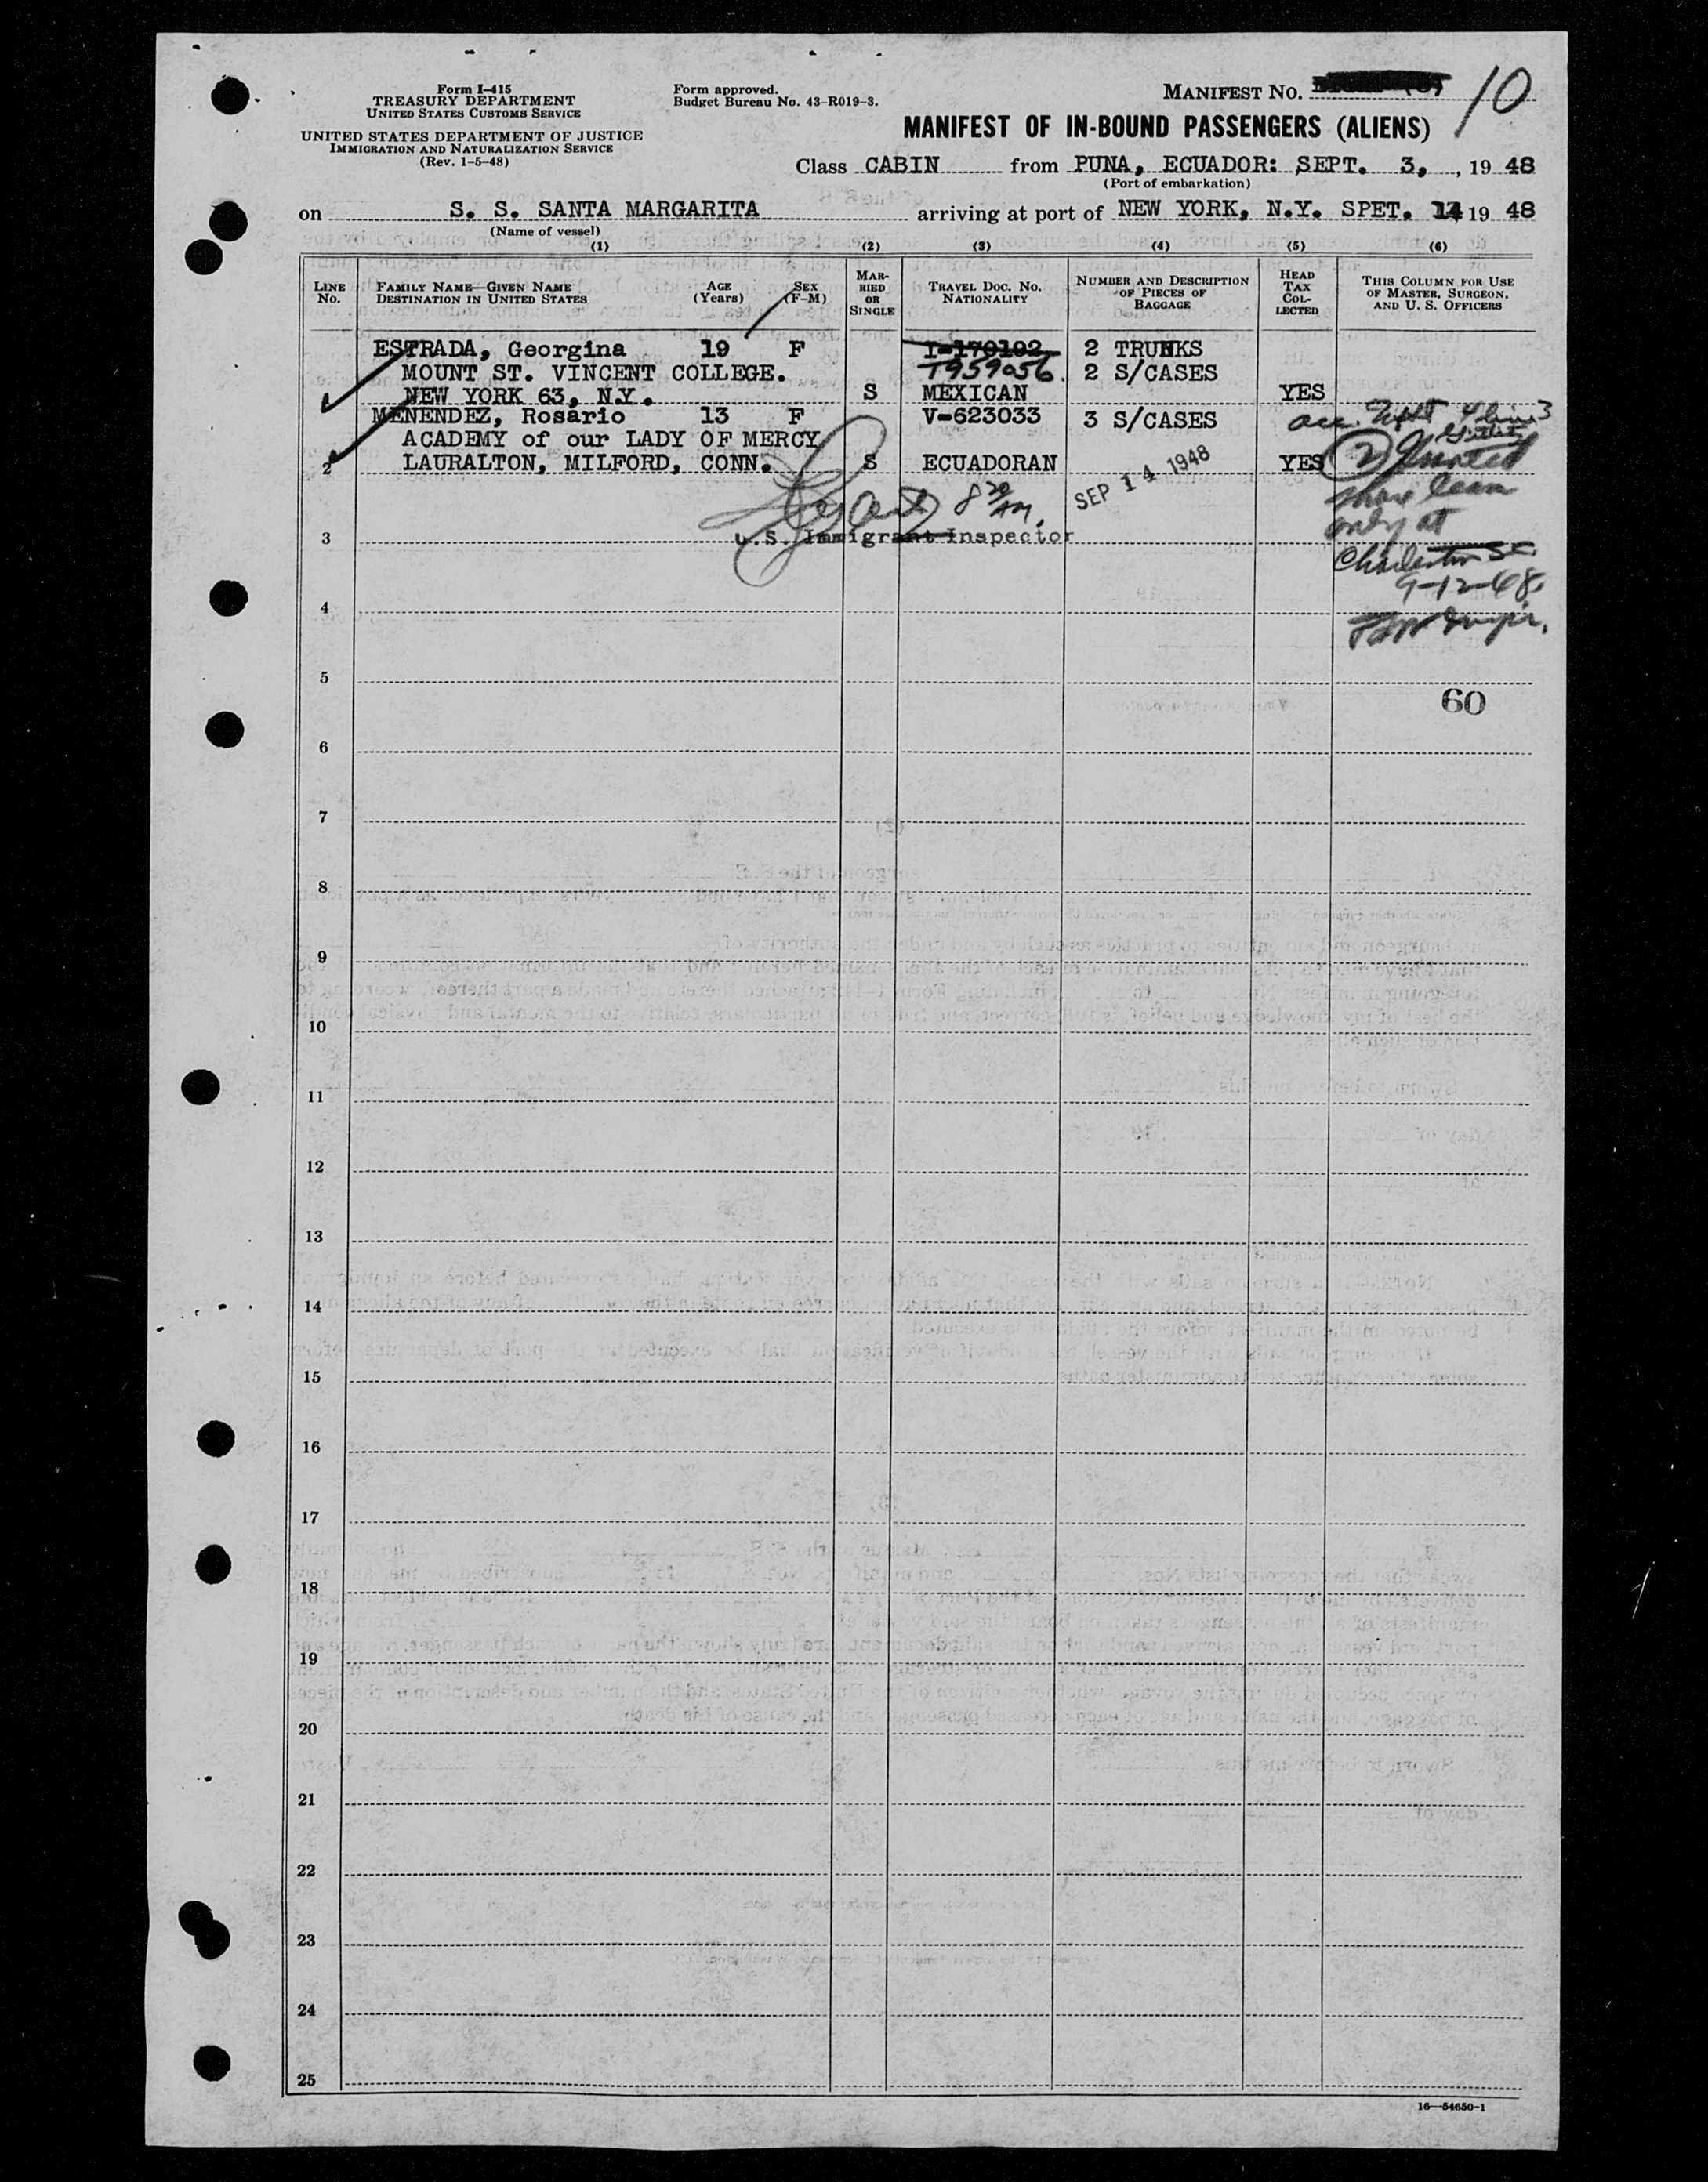 Form I-415
TREASURY DEPARTMENT
UNITED STATES CUSTOMS SERVICE
UNITED STATES DEPARTMENT OF JUSTICE
IMMIGRATION AND NATURALIZATION SERVICE
(Rev. 1-5-48)
Form approved.
Budget Bureau No. 43-R019-3.
MANIFEST NO. 10
MANIFEST OF IN-BOUND PASSENGERS (ALIENS)
Class CABIN from PUNA, ECUADOR: SEPT. 3, , 19 48
(Port of embarkation)
on S. S. SANTA MARGARITA arriving at port of NEW YORK, N.Y. SPET. 14 19 48
(Name of vessel)
(1) (2) (3) (4) (5) (6)
LINE NO.
FAMILY NAME—GIVEN NAME
DESTINATION IN UNITED STATES
AGE (Years)
SEX (F-M)
MARRIED OR SINGLE
TRAVEL DOC. NO.
NATIONALITY
NUMBER AND DESCRIPTION OF PIECES OF BAGGAGE
HEAD TAX COLLECTED
THIS COLUMN FOR USE OF MASTER, SURGEON, AND U. S. OFFICERS
ESTRADA, Georgina 19 F I-170192 2 TRUNKS
MOUNT ST. VINCENT COLLEGE. T959056 2 S/CASES
1 NEW YORK 63, N.Y. S MEXICAN YES
MENENDEZ, Rosario 13 F V-623033 3 S/CASES
ACADEMY of our LADY OF MERCY
2 LAURALTON, MILFORD, CONN. S ECUADORAN SEP 14 1948 YES
8 30 AM.
U.S. Immigrant Inspector
Granted
shore leave
only at
Charleston SC
9-12-48
3
4
5
60
6
7
8
9
10
11
12
13
14
15
16
17
18
19
20
21
22
23
24
25
16—54650-1